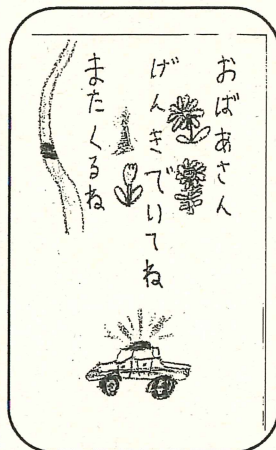 おばあさん
げんきでいてね
またくるね